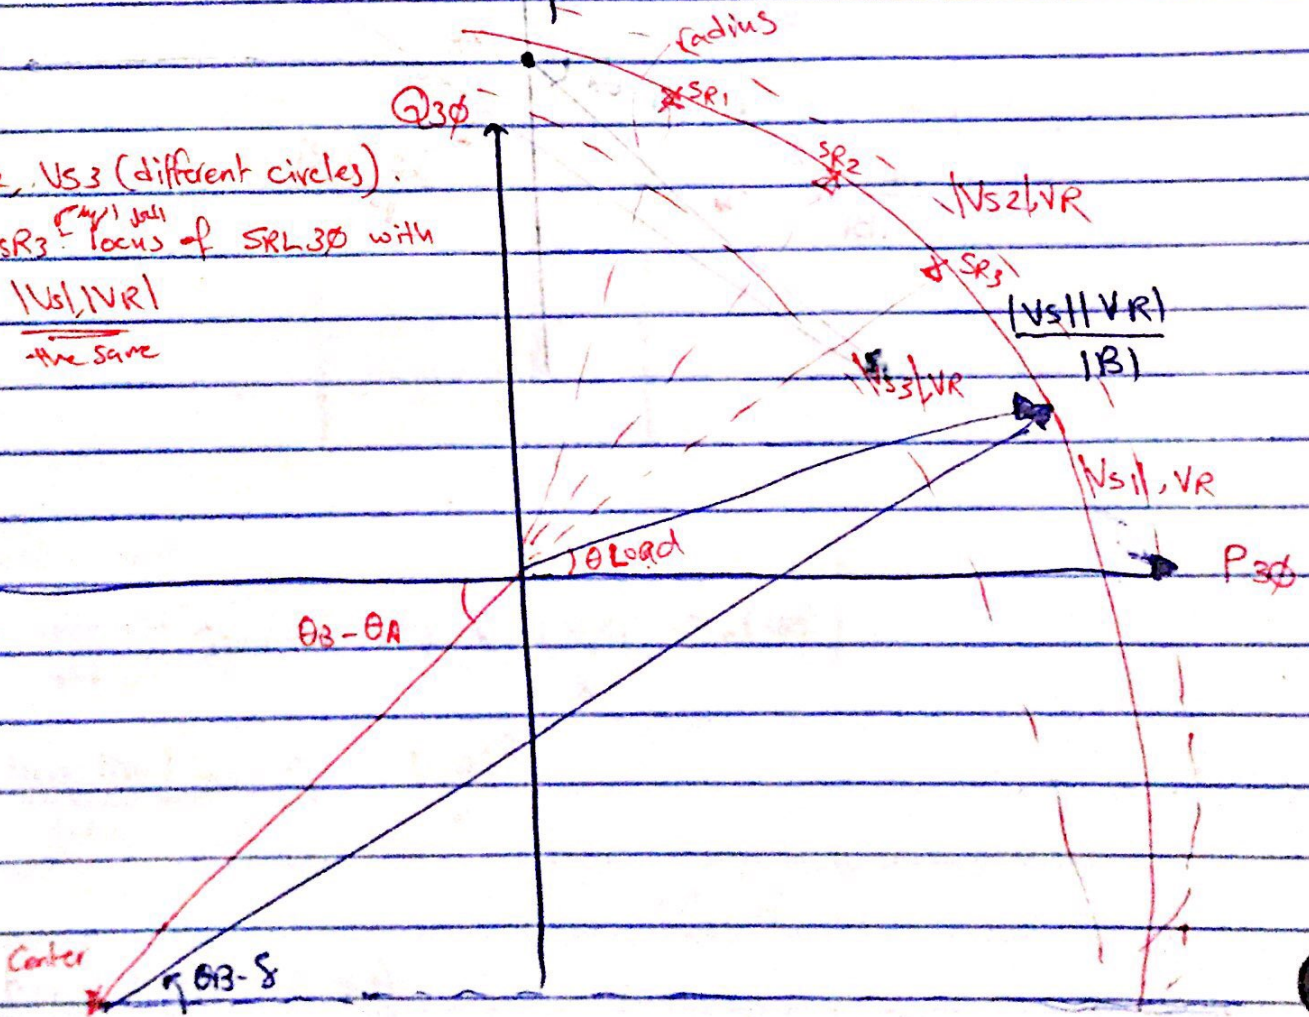 radius
SR1
Q3ϕ
SR2
, VS3 (different circles).
|VS2|, VR
SR3 - locus of SRL3ϕ with
SR3
|VS|,|VR|
the same
|VS||VR|
|B|
|VS3|, VR
|VS1|, VR
θLoad
P3ϕ
θB-θA
Center
θB-δ